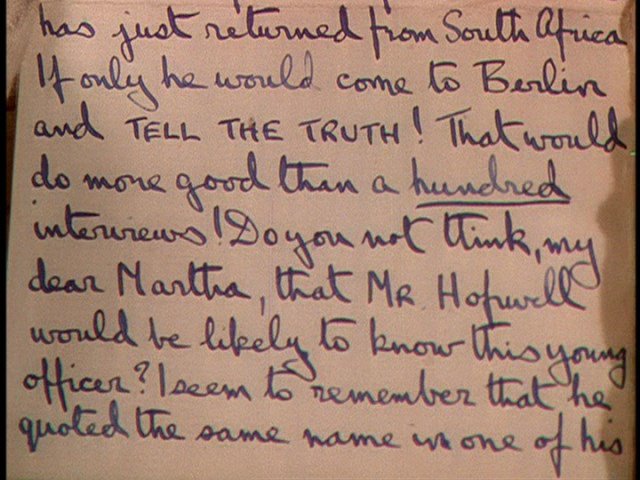 has just returned from South Africa
If only he would come to Berlin
and TELL THE TRUTH! That would
do more good than a hundred
interviews! Do you not think, my
dear Martha, that MR. Hopwell
would be likely to know this young
officer? I seem to remember that he
quoted the same name in one of his